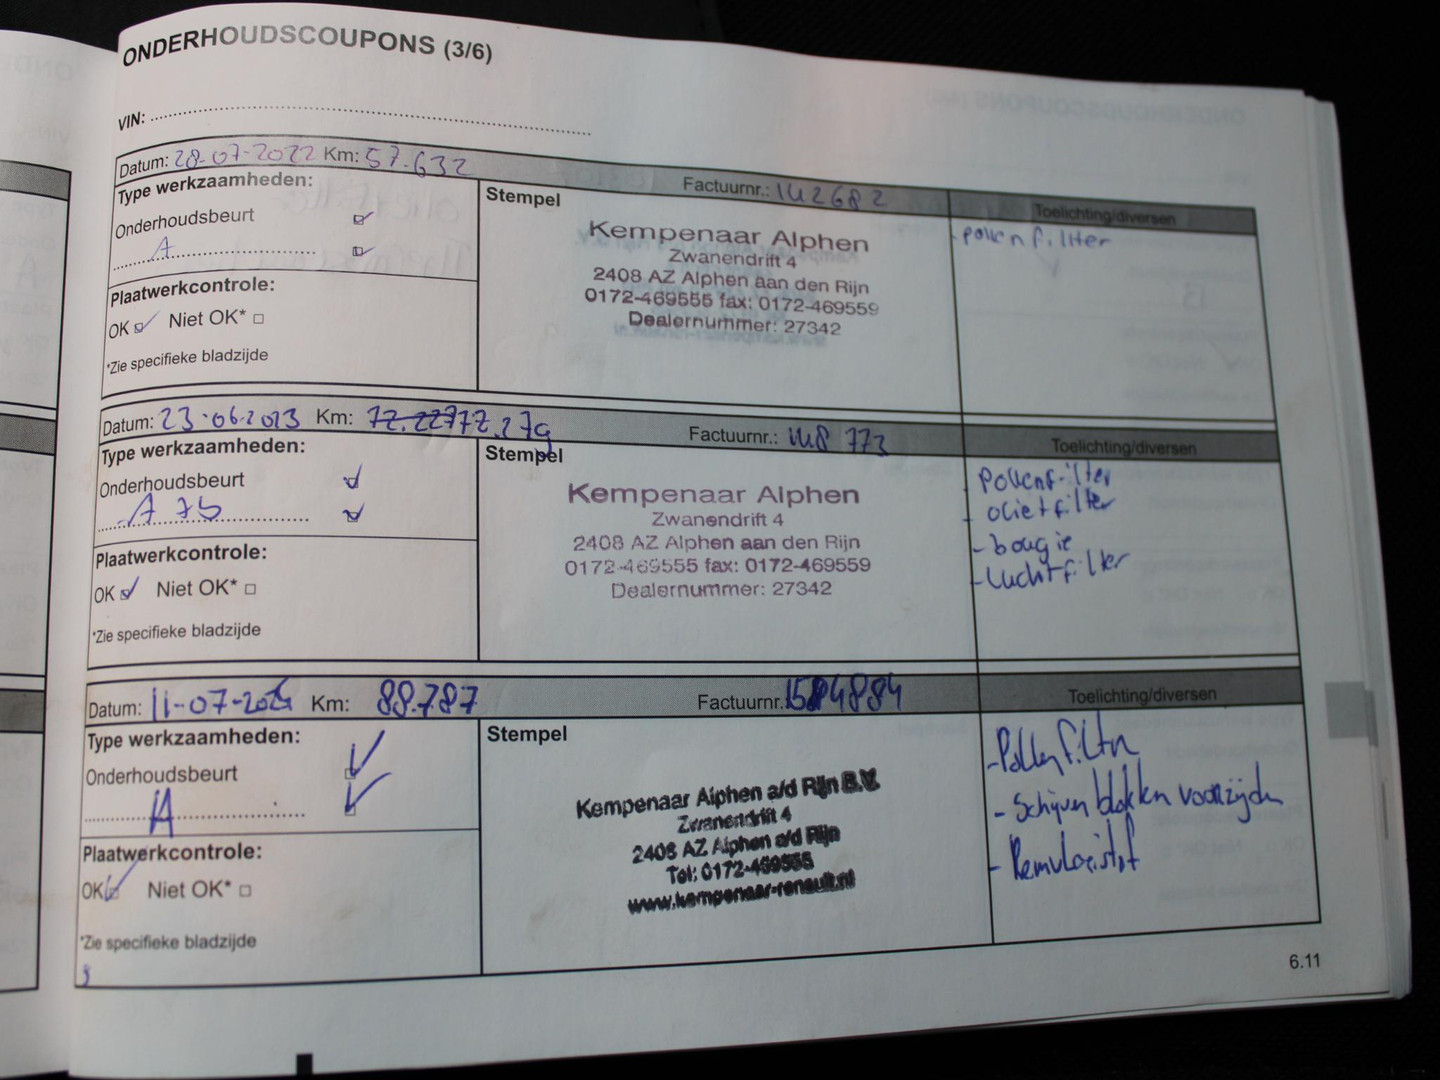 ONDERHOUDSCOUPONS (3/6)
VIN:
Datum: 28-07-2022 Km: 57.632 Factuurnr.: 142682
Type werkzaamheden:
Stempel
Toelichting/diversen
Onderhoudsbeurt
A
Kempenaar Alphen
Zwanendrift 4
2408 AZ Alphen aan den Rijn
0172-469555 fax: 0172-469559
Dealernummer: 27342
- pollenfillter
Plaatwerkcontrole:
OK Niet OK*
*Zie specifieke bladzijde
Datum: 23-06-2023 Km: 72.279 Factuurnr.: 148 773
Type werkzaamheden:
Stempel
Toelichting/diversen
Onderhoudsbeurt
A 75
Kempenaar Alphen
Zwanendrift 4
2408 AZ Alphen aan den Rijn
0172-469555 fax: 0172-469559
Dealernummer: 27342
- Pollenfilter
- olietfilter
- bougie
- Luchtfilter
Plaatwerkcontrole:
OK Niet OK*
*Zie specifieke bladzijde
Datum: 11-07-2024 Km: 88.787 Factuurnr.
Type werkzaamheden:
Stempel
Toelichting/diversen
Onderhoudsbeurt
A
Kempenaar Alphen a/d Rijn B.V.
Zwanendrift 4
2408 AZ Alphen a/d Rijn
Tel: 0172-469555
www.kempenaar-renault.nl
- Pollenfilter
- Schijven blokken voorzijden
- Remvloeistof
Plaatwerkcontrole:
OK Niet OK*
*Zie specifieke bladzijde
6.11